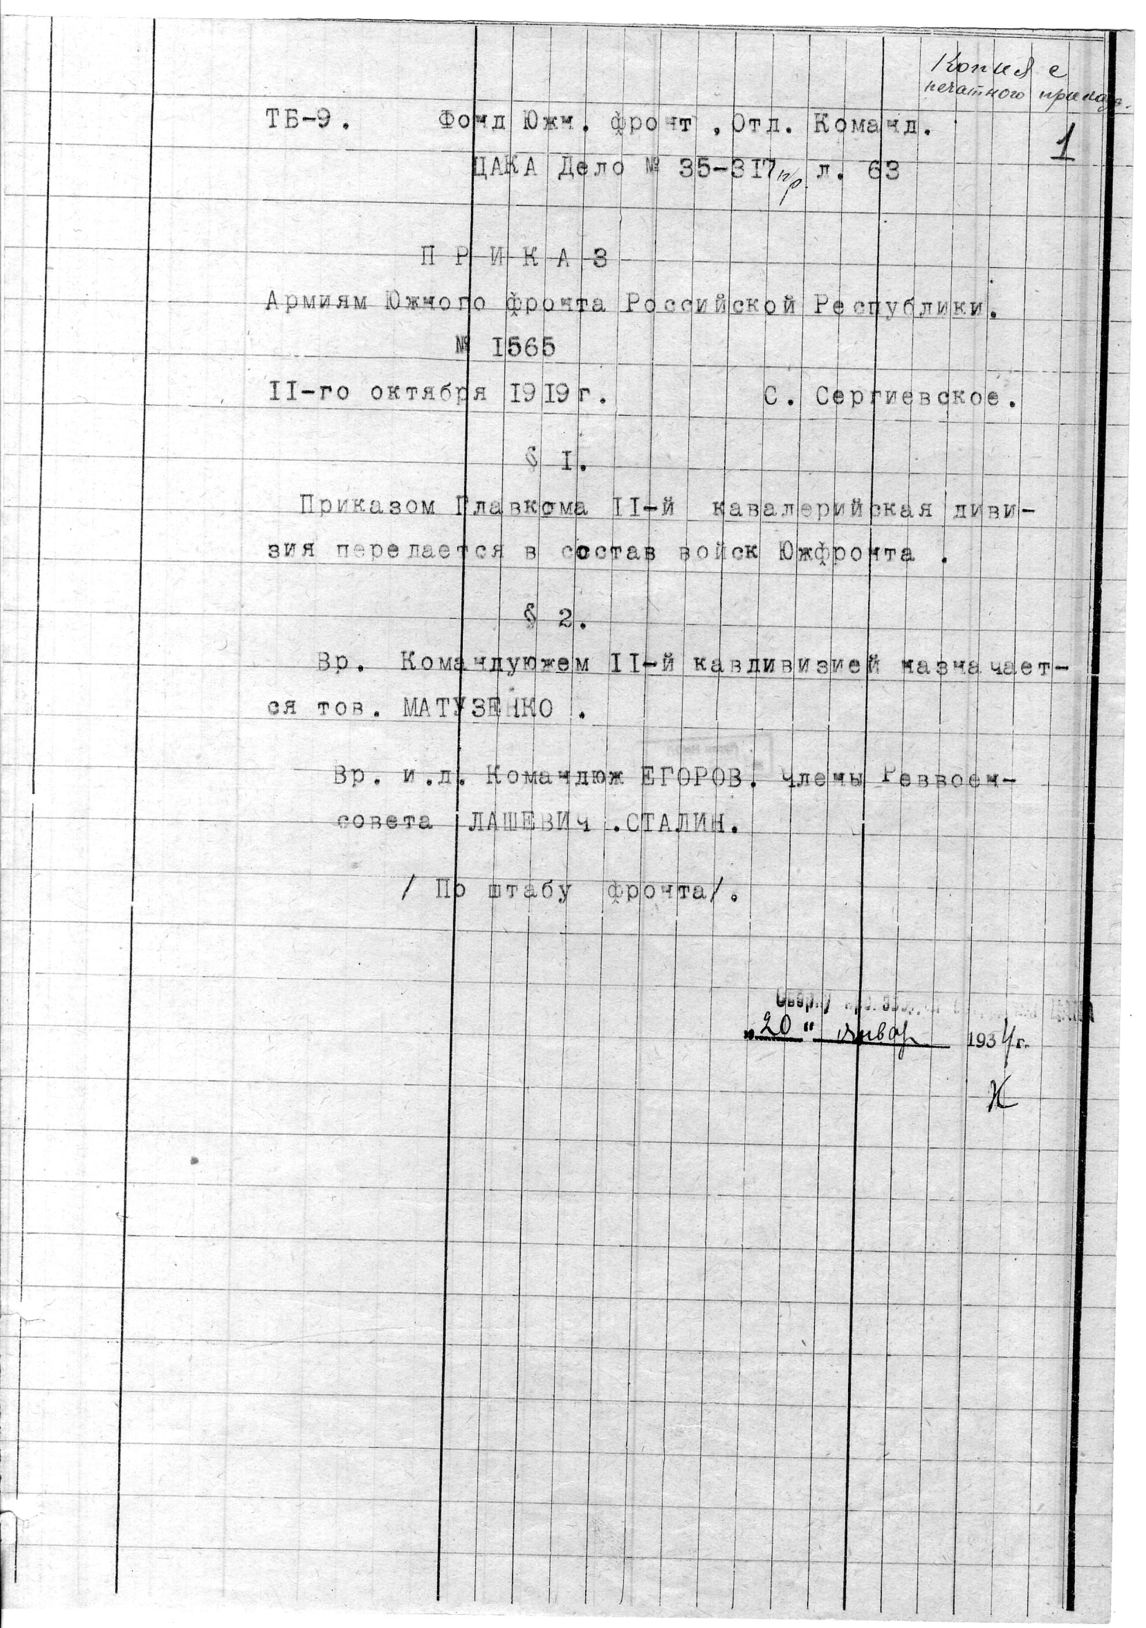 Копия с
печатного приказа.
1
ТБ-9. Фонд Южн. фронт, Отд. Команд.
ЦАКА Дело № 35-317пр. л. 63
П Р И К А З
Армиям Южного фронта Российской Республики.
№ I565
II-го октября I9I9г. С. Сергиевское.
§ I.
Приказом Главкома II-й кавалерийская диви-
зия передается в состав войск Южфронта .
§ 2.
Вр. Командуюжем II-й кавдивизией назначает-
ся тов. МАТУЗЕНКО .
Вр. и.д. Командюж ЕГОРОВ. Члены Реввоен-
совета ЛАШЕВИч .СТАЛИН.
/ По штабу фронта/.
"20" январ 1934г.